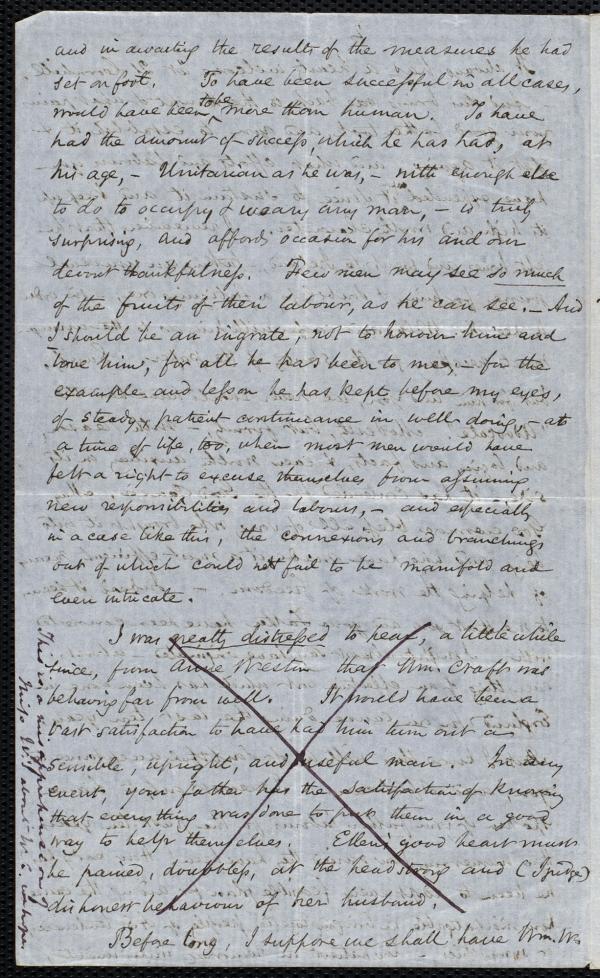 and in awaiting the results of the measures he had
set on foot. To have been successful in all cases,
would have been, to be more than human. To have
had the amount of success, which he has had, at
his age, - Unitarian as he was, - with enough else
to do to occupy & weary any man, - is truly
surprising, and affords occasion for his and our
devout thankfulness. Few men may see so much
of the fruits of their labour, as he can see. - And
I should be an ingrate, not to honour him and
love him, for all he has been to me, - for the
example and lesson he has kept before my eyes,
of steady, patient continuance in well doing, - at
a time of life, too, when most men would have
felt a right to excuse themselves from assuming
new responsibilities and labours, - and especially
in a case like this, the connexions and branchings
out of which could not fail to be manifold and
even intricate.
I was greatly distressed to hear, a little while
since, from Anne Weston that Wm. Craft was
behaving far from well. It would have been a
vast satisfaction to have had him turn out a
sensible, upright, and useful man. In any
event, your father has the satisfaction of knowing
that everything was done to put them in a good
way to help themselves. Ellen's good heart must
be pained, doubtless, at the headstrong and (I judge)
dishonest behaviour of her husband.
Before long, I suppose we shall have Wm. W.
This is a misapprehension of
Miss W's about W. C. I hope.